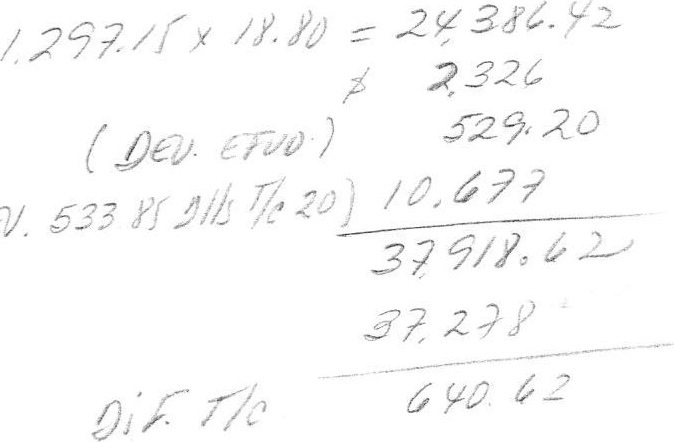 1.297.15 x 18.80 = 24,386.42
$ 2,326
(DEV. EFVO.) 529.20
V. 533 85 Dlls T/c 20) 10.677
37,918.62
37.278
Dif. T/c 640.62